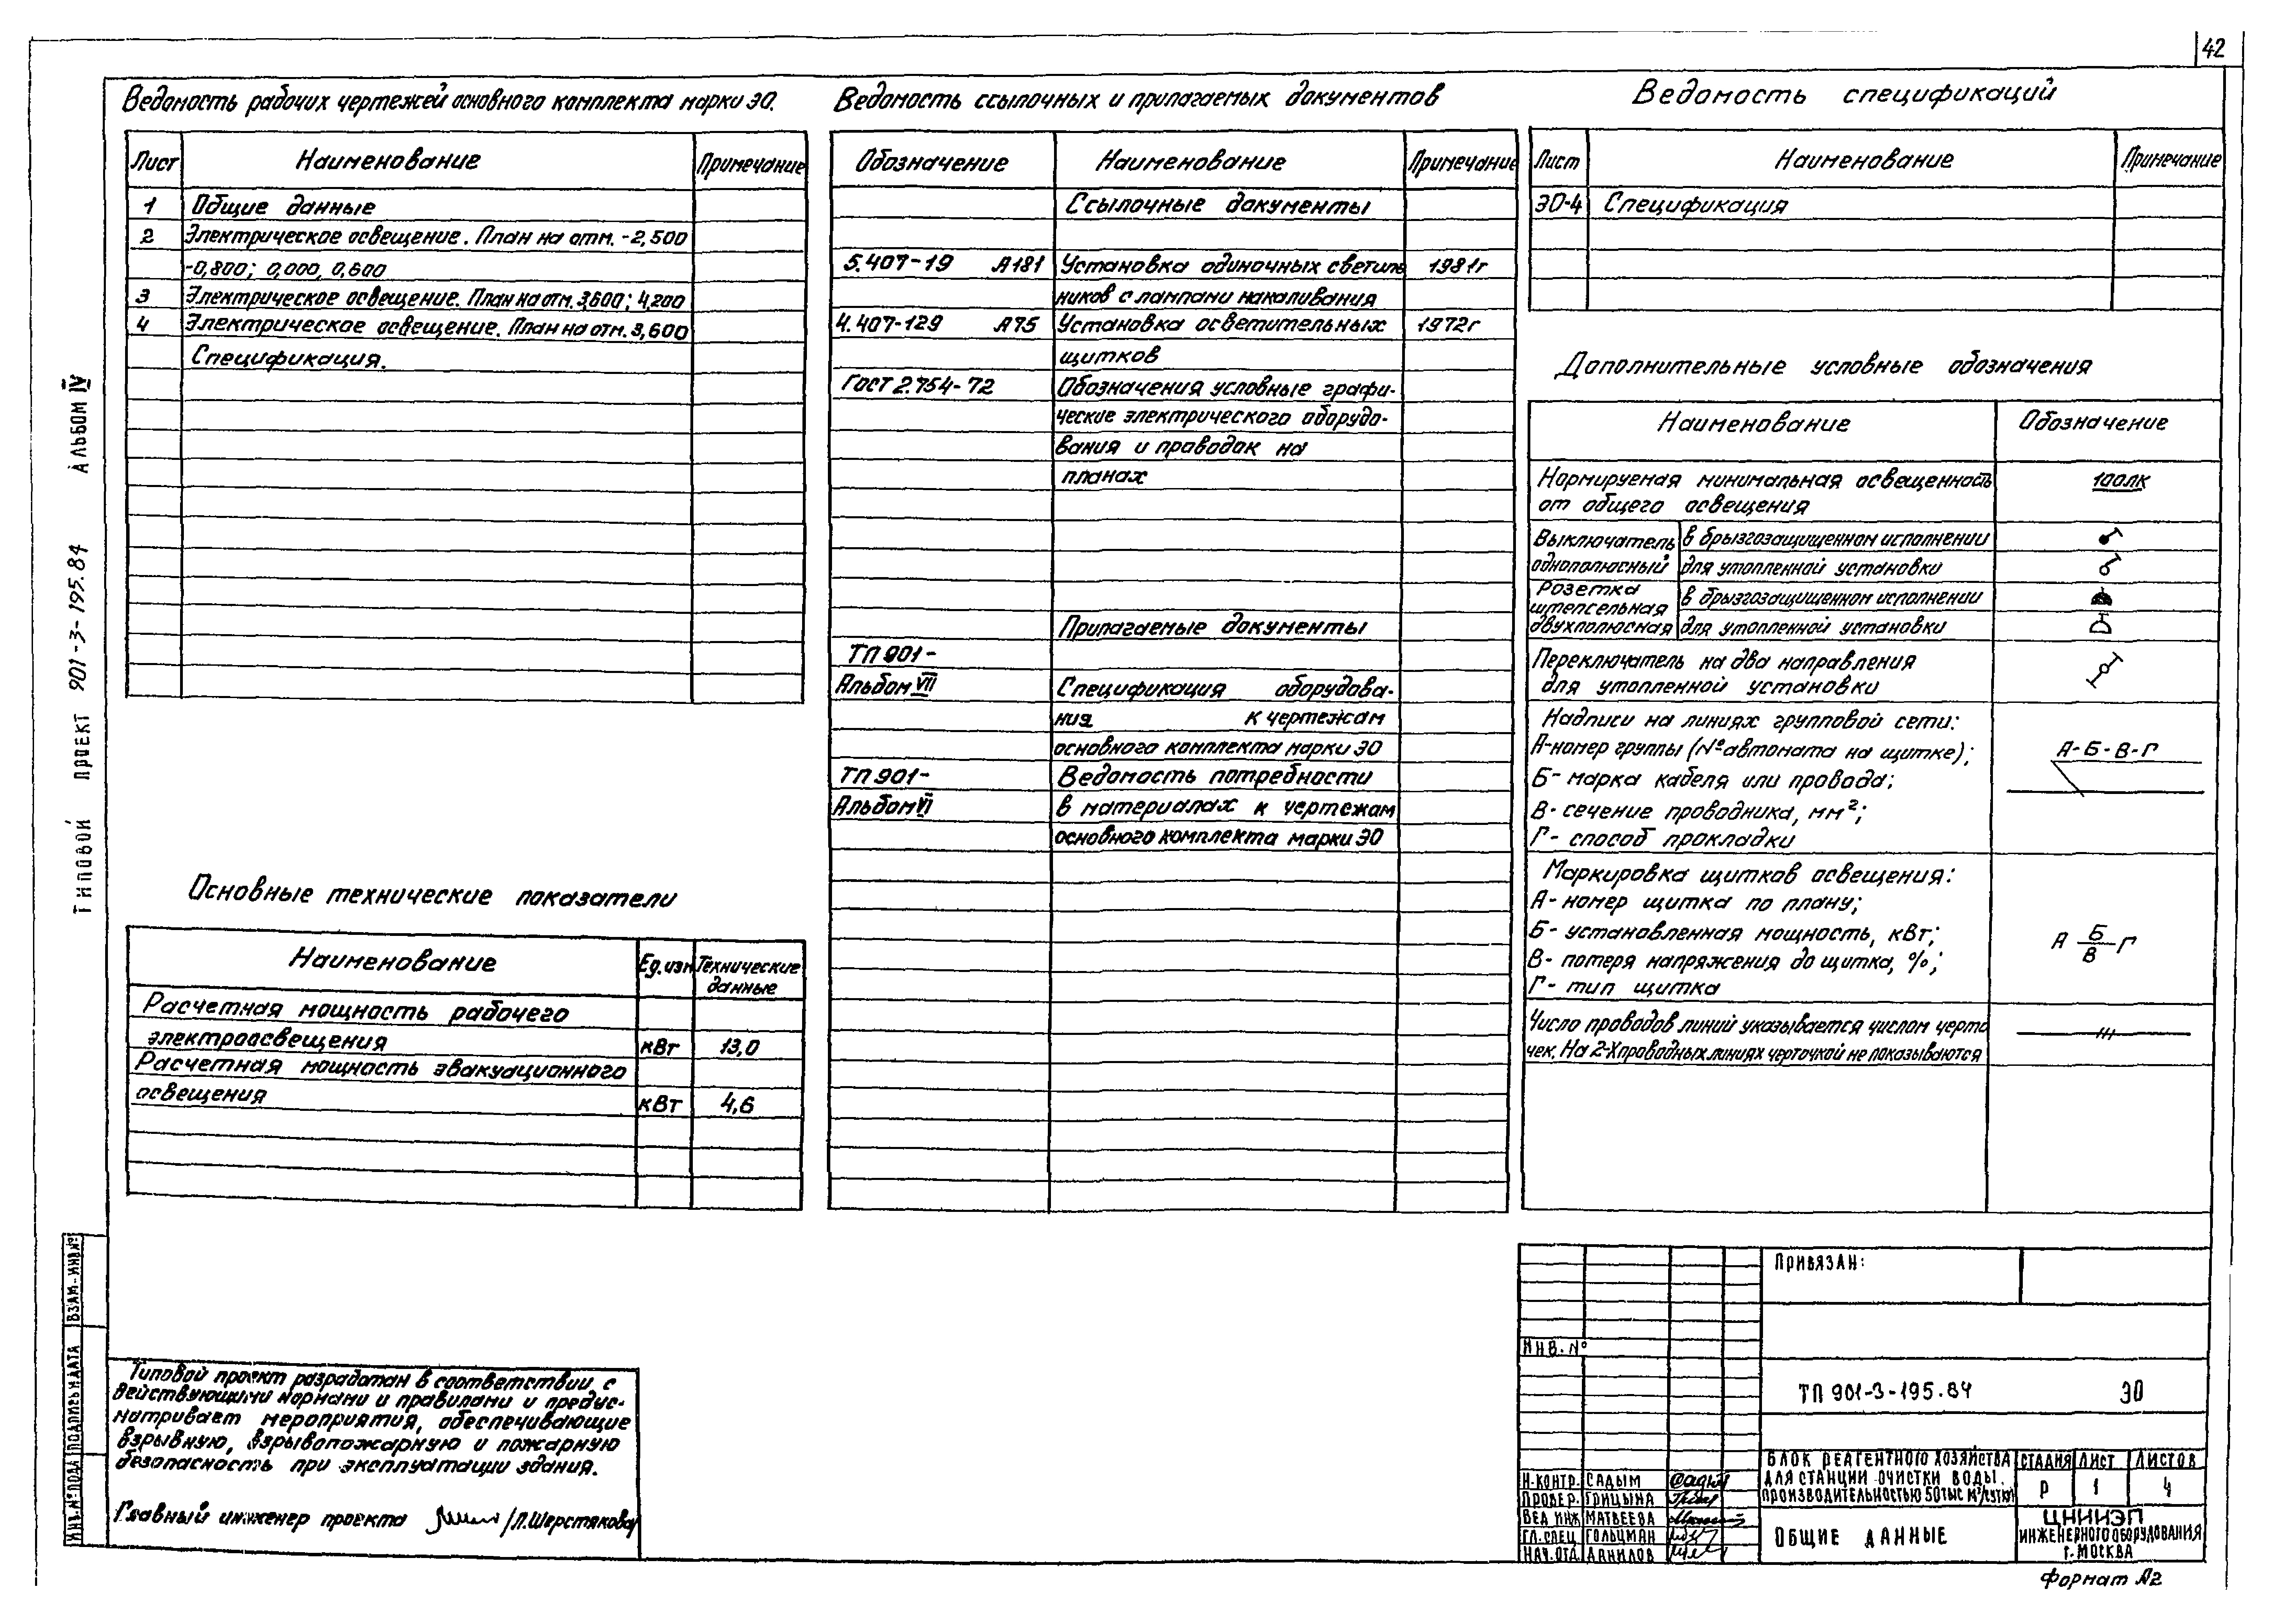 42
Ведомость рабочих чертежей основного комплекта марки ЭО.
Лист Наименование Примечание
1 Общие данные
2 Электрическое освещение. План на отм. -2,500
-0,800; 0,000, 0,600
3 Электрическое освещение. План на отм. 3,600; 4,200
4 Электрическое освещение. План на отм. 3,600
Спецификация.
Основные технические показатели
Наименование Ед.изм Технические
данные
Расчетная мощность рабочего
электроосвещения кВт 13,0
Расчетная мощность эвакуационного
освещения кВт 4,6
Ведомость ссылочных и прилагаемых документов
Обозначение Наименование Примечание
Ссылочные документы
5.407-19 А181 Установка одиночных светиль 1981г
ников с лампами накаливания
4.407-129 А75 Установка осветительных 1972г
щитков
Гост 2.754-72 Обозначения условные графи-
ческие электрического оборудо-
вания и проводок на
планах
Прилагаемые документы
ТП 901-
Альбом VII Спецификация оборудова-
ния к чертежам
основного комплекта марки ЭО
ТП 901- Ведомость потребности
Альбом VI в материалах к чертежам
основного комплекта марки ЭО
Ведомость спецификаций
Лист Наименование Примечание
ЭО-4 Спецификация
Дополнительные условные обозначения
Наименование Обозначение
Нормируемая минимальная освещенность 100лк
от общего освещения
Выключатель в брызгозащищенном исполнении
однополюсный для утопленной установки
Розетка в брызгозащищенном исполнении
штепсельная
двухполюсная для утопленной установки
Переключатель на два направления
для утопленной установки
Надписи на линиях групповой сети:
А-номер группы (№ автомата на щитке); А-Б-В-Г
Б- марка кабеля или провода;
В- сечение проводника, мм²;
Г- способ прокладки
Маркировка щитков освещения:
А- номер щитка по плану;
Б- установленная мощность, кВт; А Б/В Г
В- потеря напряжения до щитка, %;
Г- тип щитка
Число проводов линий указывается числом черто
чек. На 2-х проводных линиях черточкой не показываются
Типовой проект 901-3-195.84 Альбом IV
Инв.№ подл Подпись и дата Взам.инв№
Типовой проект разработан в соответствии с
действующими нормами и правилами и предус-
матривает мероприятия, обеспечивающие
взрывную, взрывопожарную и пожарную
безопасность при эксплуатации здания.
Главный инженер проекта /Л.Шерстякова
Привязан:
Инв. №
ТП 901-3-195.84 ЭО
Н.контр. Садым
Провер. Грицына
Вед инж Матвеева
Гл.спец Гольцман
Нач.отд. Данилов
Блок реагентного хозяйства
для станции очистки воды.
производительностью 50 тыс м³/сутки
Стадия Лист Листов
Р 1 4
Общие данные
ЦНИИЭП
инженерного оборудования
г. Москва
Формат А2